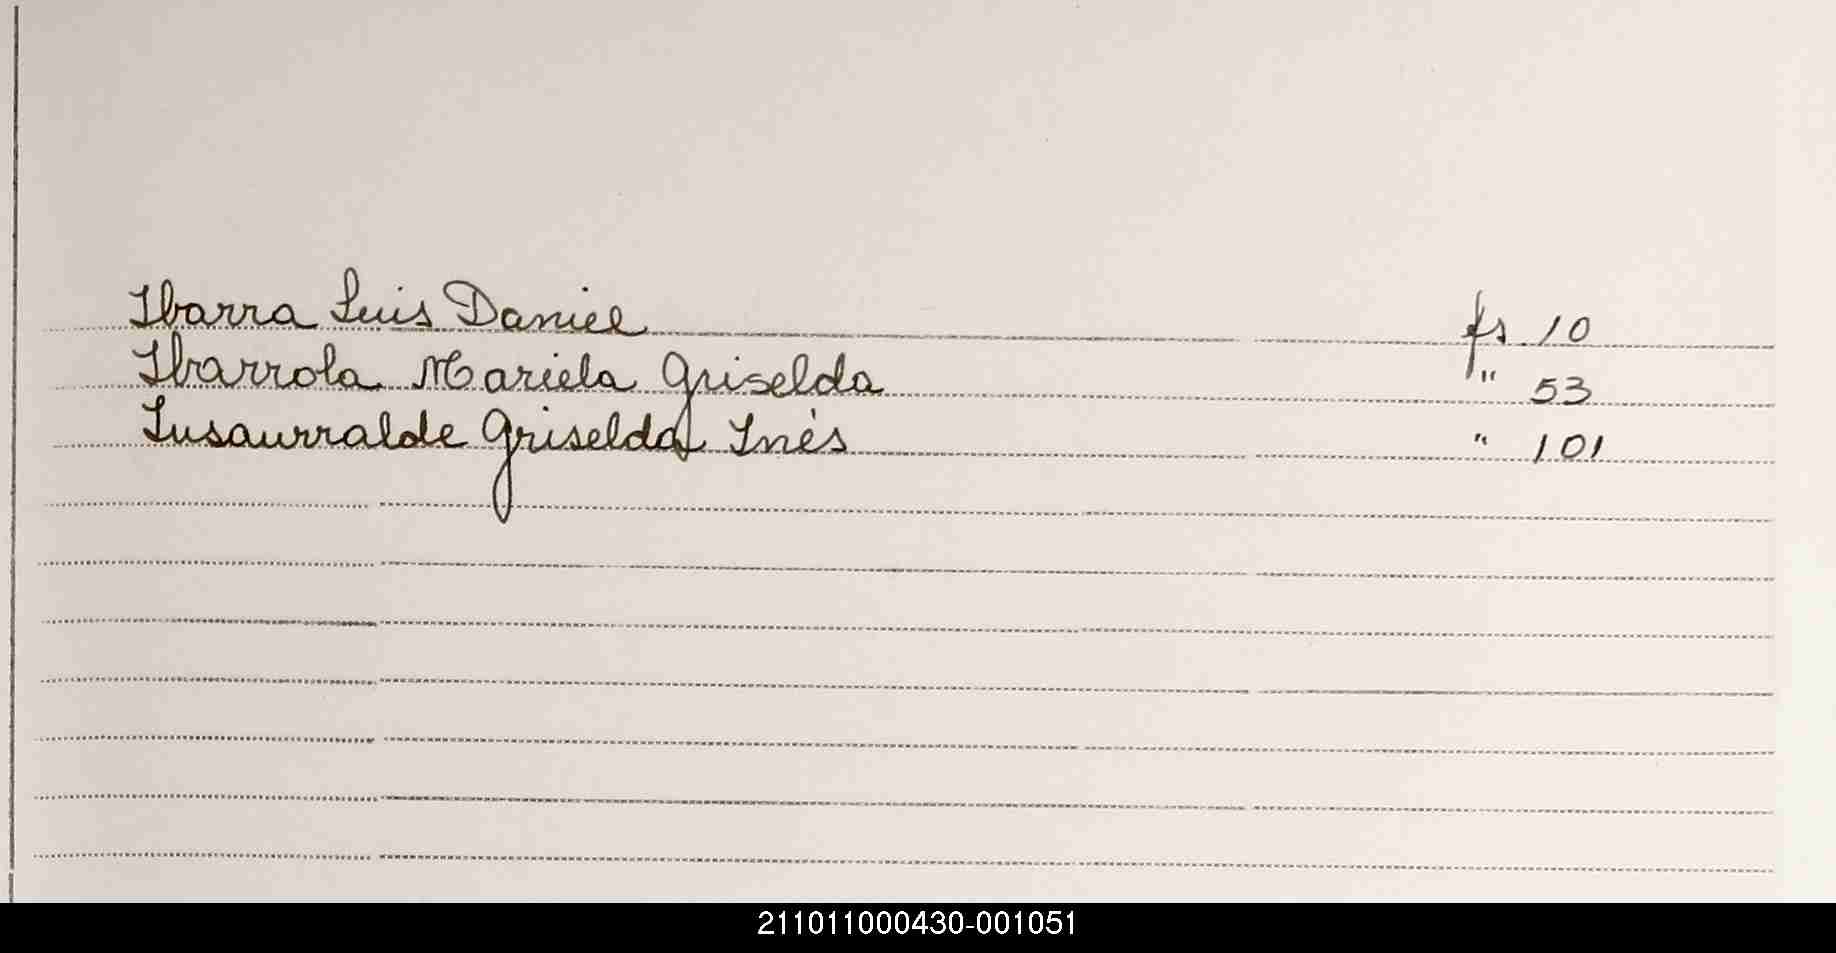 Ibarra Luis Daniel fs 10
Ibarrola Mariela Griselda " 53
Insaurralde Griselda Inés " 101
211011000430-001051